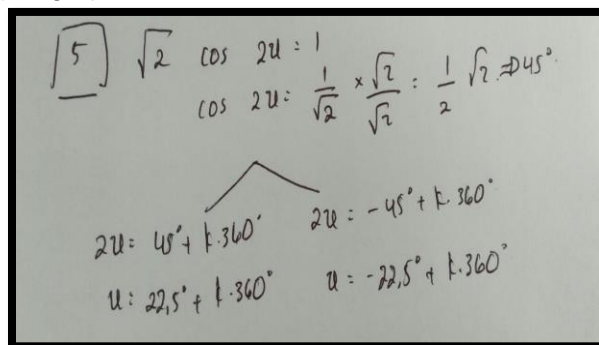 5 √2 cos 2u = 1
cos 2u = 1/√2 × √2/√2 = 1/2 √2 ⇒ 45°
2u = 45° + k.360° 2u = -45° + k.360°
u = 22,5° + k.360° u = -22,5° + k.360°